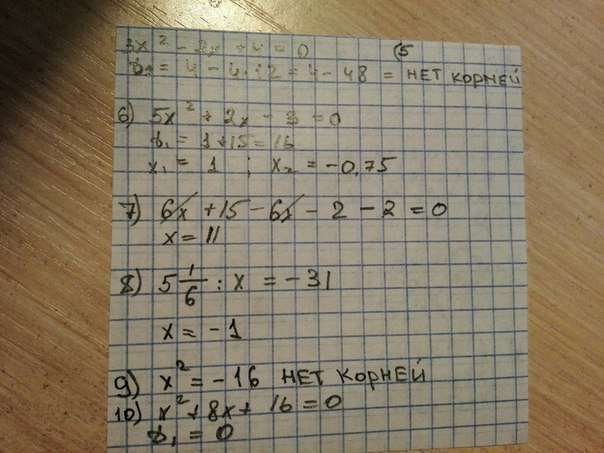 3x² - 2x + 4 = 0 (5
D₁ = 4 - 4·12 = 4 - 48 = НЕТ КОРНЕЙ
6) 5x² + 2x - 3 = 0
D₁ = 1 + 15 = 16
x₁ = 1 ; x₂ = -0,75
7) 6x + 15 - 6x - 2 - 2 = 0
x = 11
8) 5 1/6 : x = -31
x = -1
9) x² = -16 НЕТ КОРНЕЙ
10) x² + 8x + 16 = 0
D₁ = 0